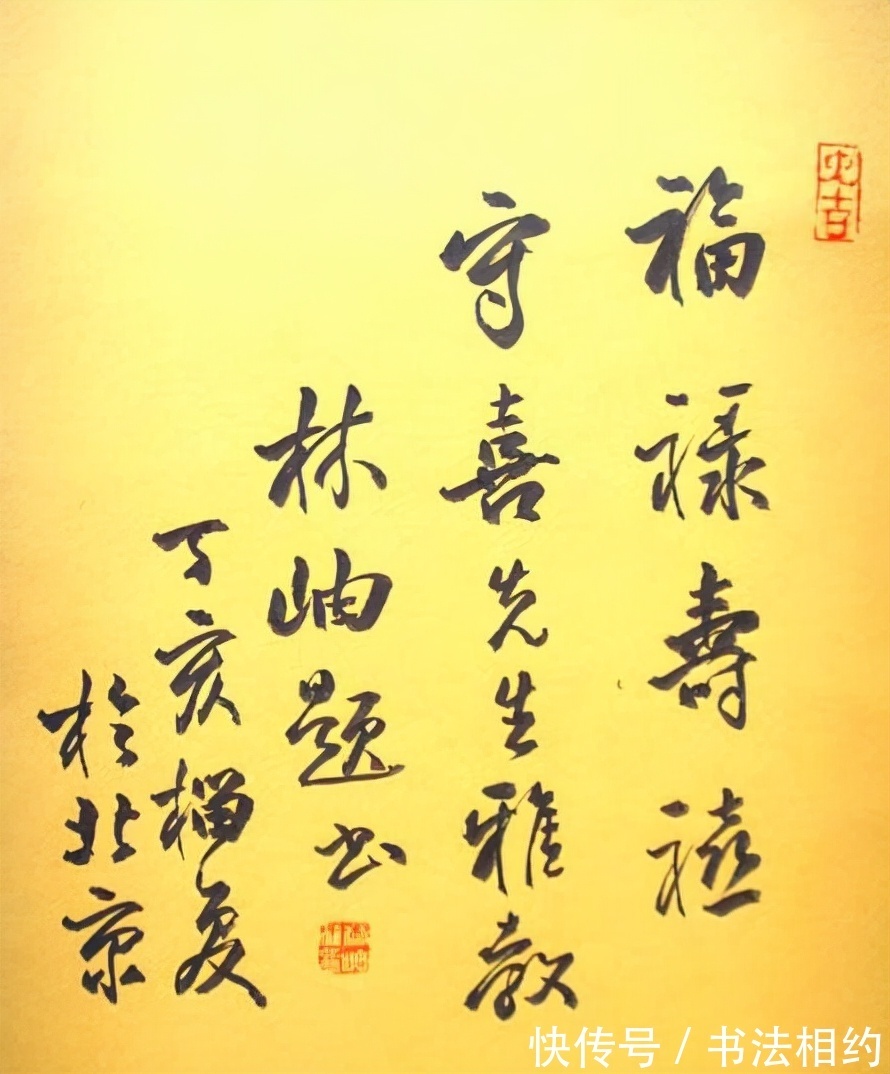 福禄壽禧
守喜先生雅教
林岫題书
丁亥榴夏
於北京
大吉
快传号 / 书法相约